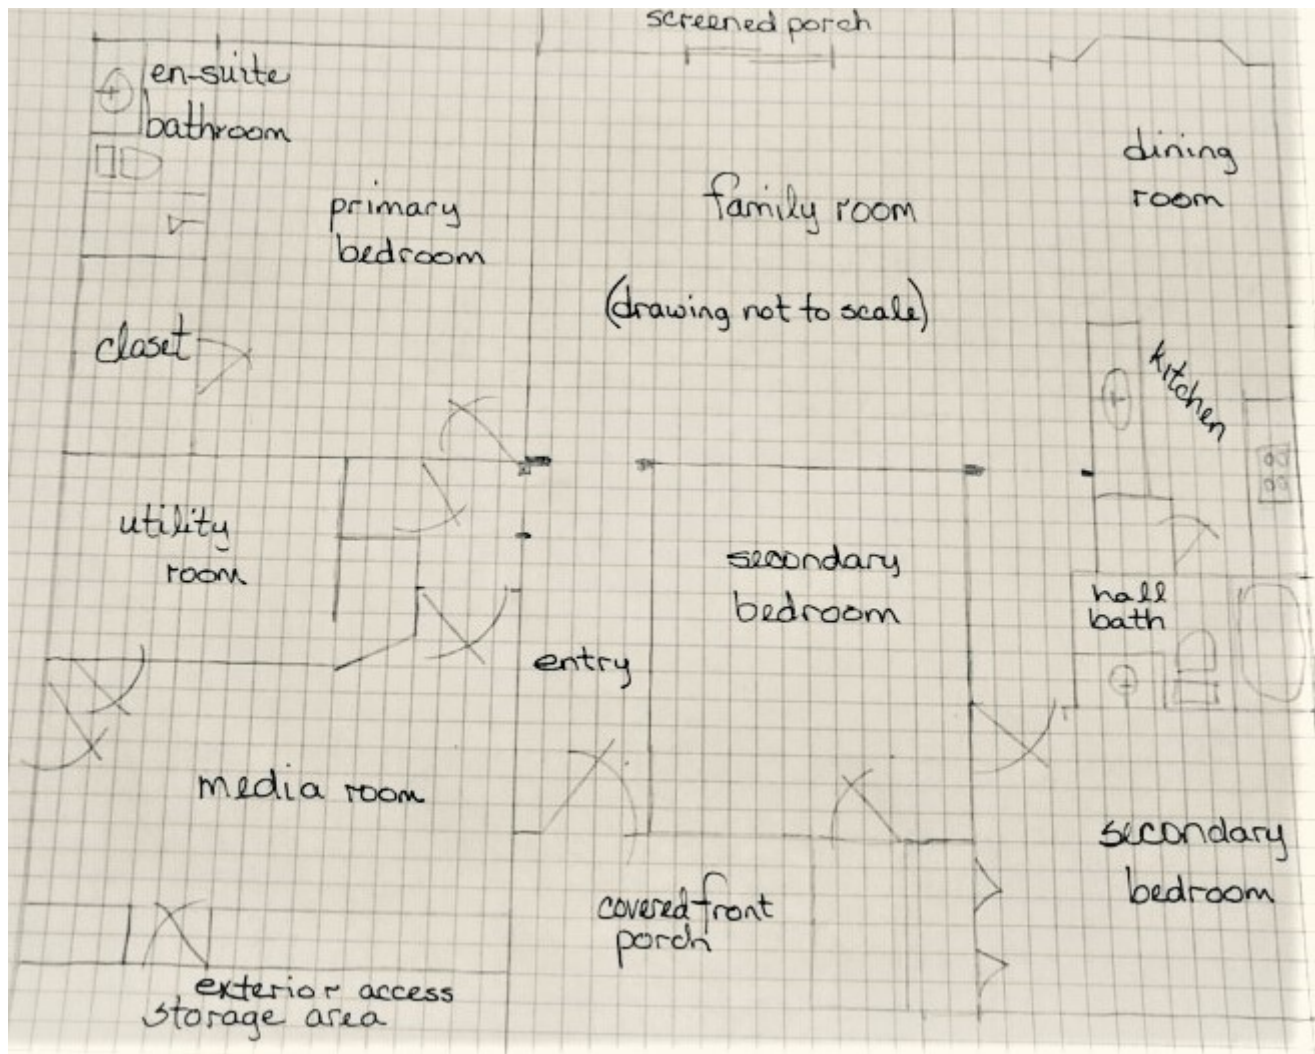 screened porch
en-suite
bathroom
dining
room
primary
bedroom
family room
(drawing not to scale)
closet
kitchen
utility
room
secondary
bedroom
hall
bath
entry
media room
secondary
bedroom
covered front
porch
exterior access
storage area